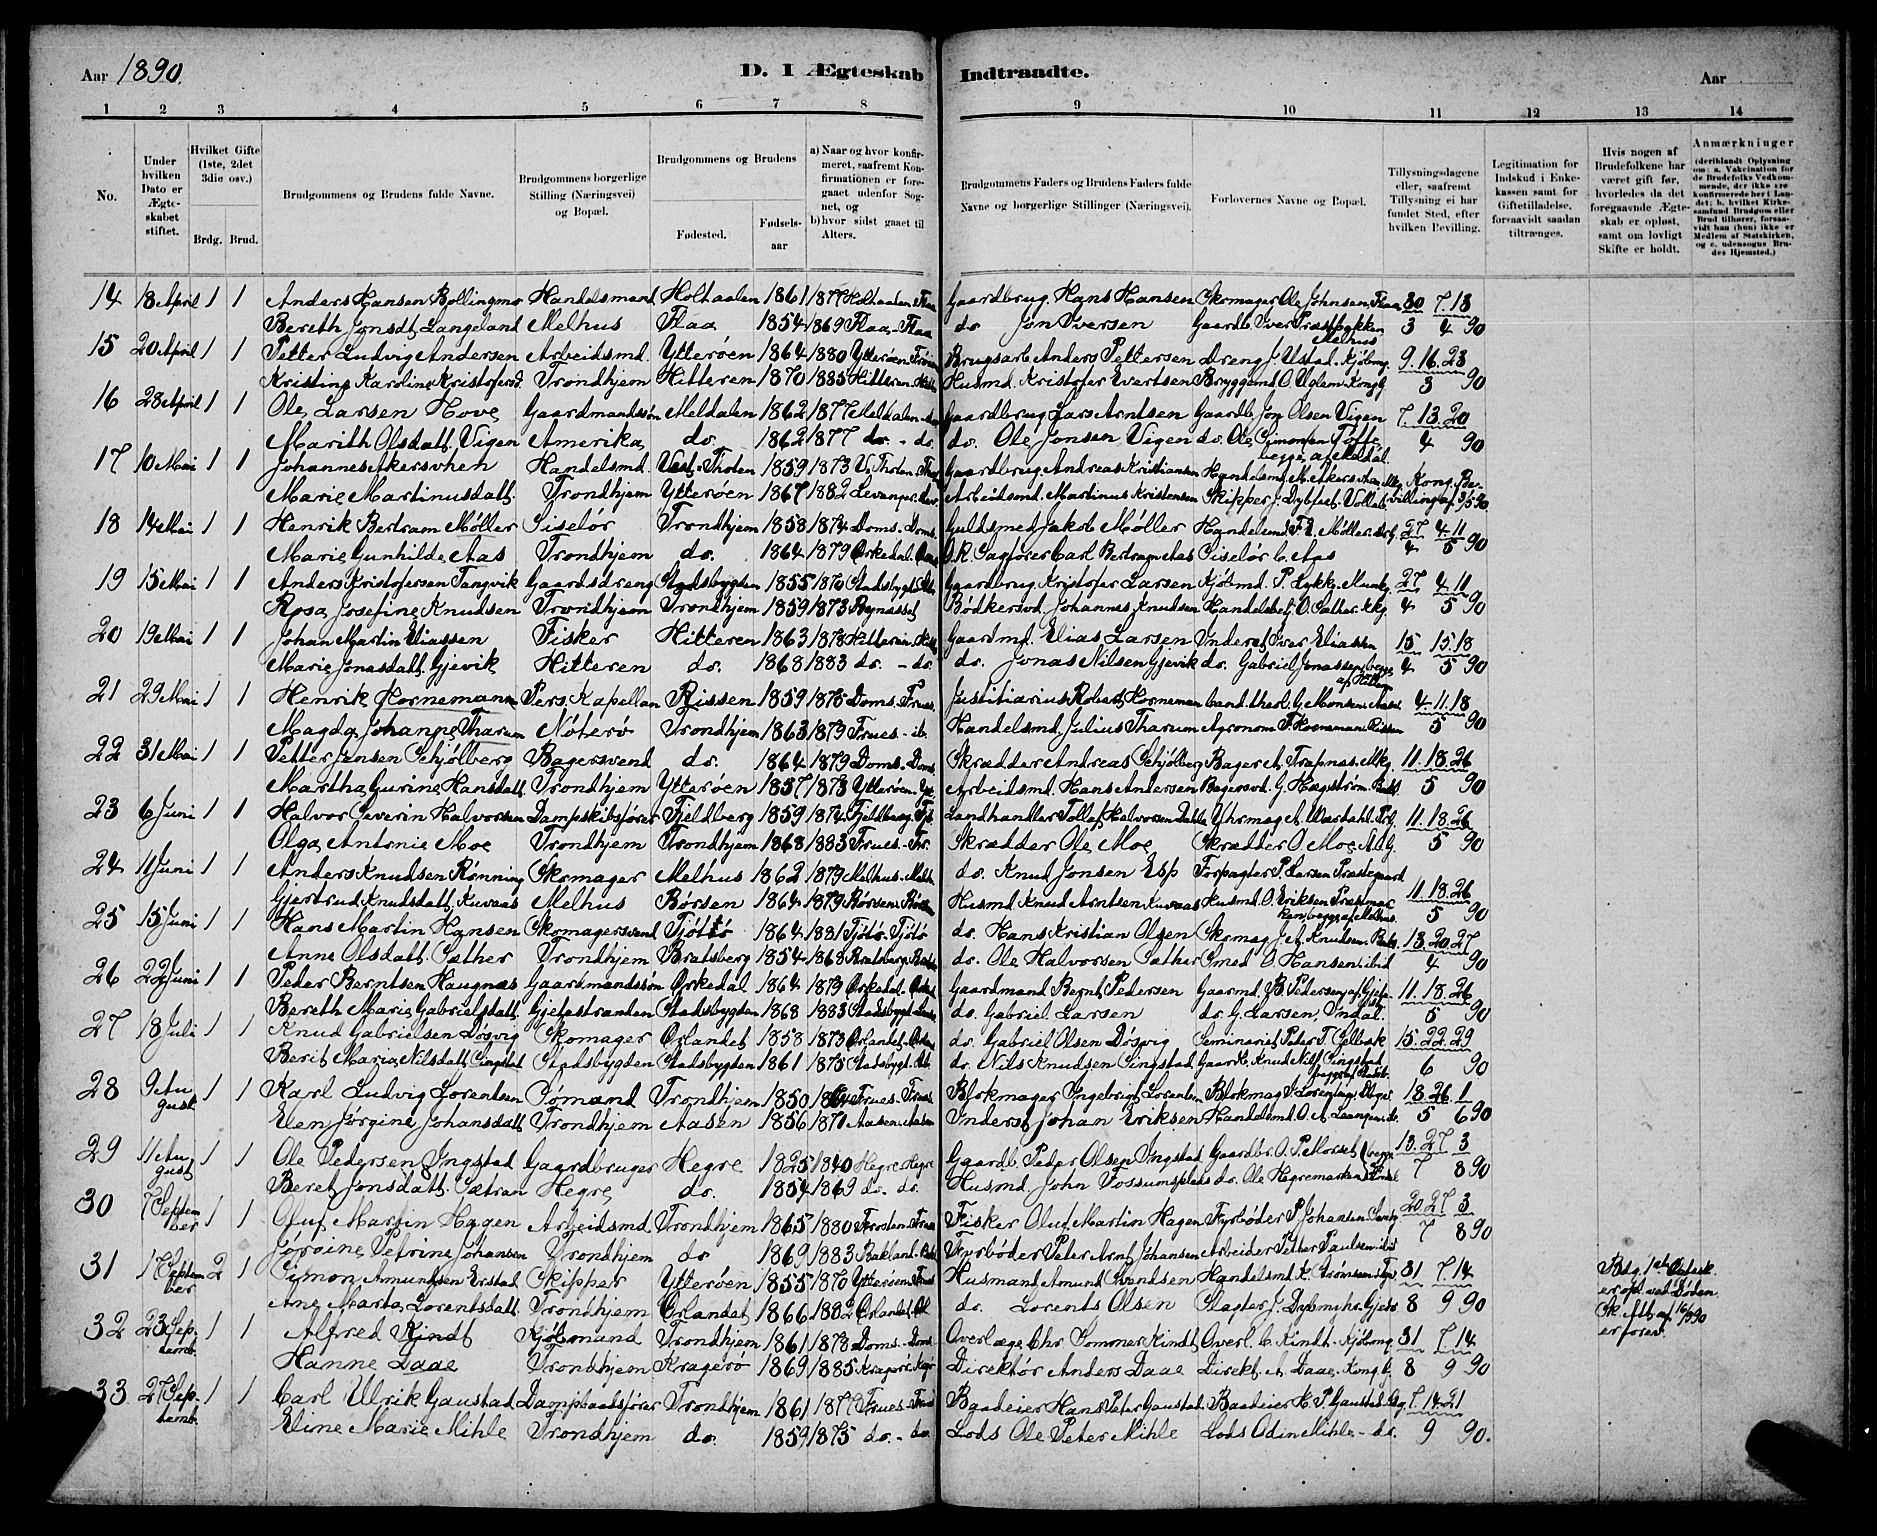 Aar 1890. D. I Ægteskab Indtraadte. Aar
1 2 3 4 5 6 7 8 9 10 11 12 13 14
No.
Under hvilken Dato er Ægteskabet stiftet.
Hvilket Gifte (1ste, 2det 3die osv.)
Brdg. Brud.
Brudgommens og Brudens fulde Navne.
Brudgommens borgerlige Stilling (Næringsvei) og Bopæl.
Brudgommens og Brudens
Fødested. Fødselsaar
a) Naar og hvor konfirmeret, saafremt Konfirmationen er foregaaet udenfor Sognet, og
b) hvor sidst gaaet til Alters.
Brudgommens Faders og Brudens Faders fulde Navne og borgerlige Stillinger (Næringsvei).
Forlovernes Navne og Bopæl.
Tillysningsdagene eller, saafremt Tillysning ei har fundet Sted, efter hvilken Bevilling.
Legitimation for Indskud i Enkekassen samt for Giftetilladelse, forsaavidt saadan tiltrænges.
Hvis nogen af Brudefolkene har været gift før, hvorledes da det foregaaende Ægteskab er opløst, samt om lovligt Skifte er holdt.
Anmærkninger
(deriblandt Oplysning om: a. Vakcination for de Brudefolks Vedkommende, der ikke ere konfirmerede her i Landet; b. hvilket Kirkesamfund Brudgom eller Brud tilhører, forsaavidt han (hun) ikke er Medlem af Statskirken, og c. udensogns Brudes Hjemsted.)
14 18 April 1 1 Anders Hansen Bollingmo Handelsmand Holtaalen 1861 1877 Holtaalen Flaa Gaardbrug. Hans Hansen Skomager Ole Johnsen, Flaa 30 7. 13
Bereth Jonsdt. Langeland Melhus Flaa 1854 1869 Flaa - Flaa do Jon Iversen Gaardb. Iver Præstbykken Melhus 3 4 90
15 20 April 1 1 Petter Ludvig Andersen Arbeidsmd. Ytterøen 1864 1880 Ytterøen Brugsarb. Anders Pettersen Dreng J. Ustad. Kjøbmg. 9. 16. 23
Kristine Karoline Kristofersd. Trondhjem Hitteren 1870 1885 Hitteren Husmd. Kristofer Evertsen Byggmd. O. Uglem Kongsg 3 90
16 28 April 1 1 Ole Larsen Hove Gaardmandssøn Meldalen 1862 1877 Meldalen Gaardbrug Lars Arntsen Gaardb. Jon Olsen Vigen 7. 13. 20
Marith Olsdatt. Vigen Amerika do. 1862 1877 do. - do. do. Ole Jonsen Vigen do. Ole Simonsen Tofte begge af Meldal. 4 90
17 10 Mai 1 1 Johannes Akersvhen Handelsmd. Vest-Thoten 1859 1873 V. Thoten Gaardbrug Andreas Kristiansen Handelsmd. M. Akers Kong. Be-
Marie Martinusdatt. Trondhjem Ytterøen 1867 1882 Levanger Arbeidsmd. Martinus Kristensen Skipper J. Dybfest villing af 3/5 90
18 14 Mai 1 1 Henrik Bertram Møller Siselør Trondhjem 1858 1874 Doms. Doms. Guldsmed Jakob Møller Handelsmd. F. E. Møller 27 4. 11
Marie Gunhilde Aas Trondhjem do. 1864 1879 Ørkedal O.R. Sagfører Carl Bertram Aas Siselør C. Aas 4 5 90
19 15 Mai 1 1 Anders Kristofersen Tangvik Gaardsdreng Stadsbygden 1855 1870 Stadsbygd. Gaardbrug Kristofer Larsen Kjøbmd. P. Lykke, Munkg. 27 4. 11
Rosa Josefine Knudsen Trondhjem Trondhjem 1859 1873 Bynæsset Bødkersvd. Johannes Knudsen Handelsbet. O. Sæther 4 5 90
20 19 Mai 1 1 Johan Martin Eliassen Fisker Hitteren 1863 1878 Hitteren Gaardmd. Elias Larsen Inderst Iver Eliassen 15 15. 18
Marie Jonasdatt. Gjevik Hitteren do. 1868 1883 do. - do. do. Jonas Nilsen Gjevik do. Gabriel Jonassen, begge af Hitteren 4 5 90
21 29 Mai 1 1 Henrik Hornemann Pers. Kapellan Rissen 1859 1875 Doms. Frues. Justitiarius Robert Hornemann Cand. theol. G. Monsen 4. 11. 18
Magda Johanne Tharum Nøterø Trondhjem 1863 1879 Frues - ib. Handelsmd. Julius Tharum Agronom F. Hornemann Rissen 5 90
22 31 Mai 1 1 Petter Jensen Schjølberg Bagersvend do. 1864 1879 Doms. Doms. Skrædder Andreas Schjølberg Bager A. Trapnæs. 11. 18. 26
Martha Gurine Hansdatt. Trondhjem Ytterøen 1857 1873 Ytterøen Arbeidsmd. Hans Andersen Bagersvd. G. Hægstrøm. 5 90
23 6 Juni 1 1 Halvor Severin Halvorsen Dampskibsfører Fjeldberg 1859 1874 Fjeldberg Landhandler Tollef Halvorsen Uhrmag. A. Værdahl 11. 18. 26
Olga Antonie Moe Trondhjem Trondhjem 1868 1883 Frues - Fr. Skrædder Ole Moe Skrædder O. Moe 5 90
24 11 Juni 1 1 Anders Knudsen Rønning Skomager Melhus 1862 1879 Melhus. Melh. do. Knud Jonsen Esp Forpagter P. Larsen Præstegaard 11. 18. 26
Gjertrud Knudsdatt. Kuvaas Melhus Børsen 1864 1879 Børsen. Husmd. Knud Arntsen Kuvaas Husmd. O. Eriksen begge af Melhus. 5 90
25 15 Juni 1 1 Hans Martin Hansen Skomagersvend Tjøttø 1864 1881 Tjøtø. Tjøtø do. Hans Kristian Olsen Skomag. J. A. Knudsen. 13. 20. 27
Anne Olsdatt. Sæther Trondhjem Bratsberg 1854 1868 Bratsberg do. Ole Halvorsen Sæther Smed O. Hansen. ibid 4 90
26 22 Juni 1 1 Peder Berntsen Haugnæs Gaardmandssøn Ørkedal 1864 1879 Ørkedal Gaardmand Bernt Pedersen Gaardmd. B. Pedersen 11. 18. 26
Bereth Marie Gabrielsdatt. Gjetestranden Stadsbygden 1868 1883 Stadsbygd. do. Gabriel Larsen do. G. Larsen, 5 90
27 18 Juli 1 1 Knud Gabrielsen Døsvig Skomager Ørlandet 1858 1873 Ørlandet. do. Gabriel Olsen Døsvig Seminarist Peter T. 15. 22. 29
Berit Maria Nilsdatt. Singstad Stadsbygden Stadsbygden 1861 1875 Stadsbygd. do. Nils Knudsen Singstad Gaardb. Knud Nils. Singstad 6 90
28 9 August 1 1 Karl Ludvig Lorentsen Sømand Trondhjem 1850 Frues - Frues Blokmager Ingebrigt Lorentsen Blokmag. I. Lorentsen 18. 26. 1
Elen Jørgine Johansdatt Trondhjem Aasen 1856 1870 Aasen. Aasen Inderst Johan Eriksen Handelsmd. O. A. 5 6 90
29 11 August 1 1 Ole Pedersen Ingstad Gaardbruger Hegre 1825 1840 Hegre Hegre Gaardb. Peder Olsen Ingstad Gaardbr. O. P. 13. 27 3
Beret Jonsdatt. Sætran Hegre do. 1854 1869 do. do. Husmd. John Fossumsplads do. Ole Hegremarken 7 8 90
30 7 September 1 1 Oluf Martin Hagen Arbeidsmd. Trondhjem 1865 1880 Frosten Fisker Oluf Martin Hagen Fyrbøder P. Johansen 20. 27 3
Jørgine Petrine Johansen Trondhjem do 1869 1883 Bakland. Fyrbøder Peter Arnt Johansen Arbeider Petter Paulsen ibid 7 8 90
31 17 September 2 1 Simon Amundsen Erstad Skipper Ytterøen 1855 1870 Ytterøen Husmand Amund Svendsen Handelsmd. K. Strømsen 31 7. 14 Bdg. 1ste Ægtesk. er opl. ved Døden. Sk. Att. af 16/9 90 er forev.
Ane Marta Lorentsdatt. Trondhjem Ørlandet 1866 1882 Ørlandet do. Lorents Olsen Slagter J. 8 9 90
32 23 Septemb. 1 1 Alfred Kindt Kjøbmand Trondhjem 1861 1878 Doms. - Doms. Overlæge Chr. Sommer Kindt Overl. C. Kindt. Kjøbmg. 31 7. 14
Hanne Daae Trondhjem Kragerø 1869 1885 Kragerø. Direktør Anders Daae Direkt. A. Daae. Kong. G. 8 9 90
33 27 Septemb. 1 1 Carl Ulrik Gaustad Dampbaadsfører Trondhjem 1861 1877 Frues - Baadeier Hans Peter Gaustad Baadeier H. P. Gaustad 7. 14. 21
Eline Marie Mihle Trondhjem do. 1859 1875 do. - do. Lods Ole Peter Mihle Lods Odin Mihle - do. 9 90.